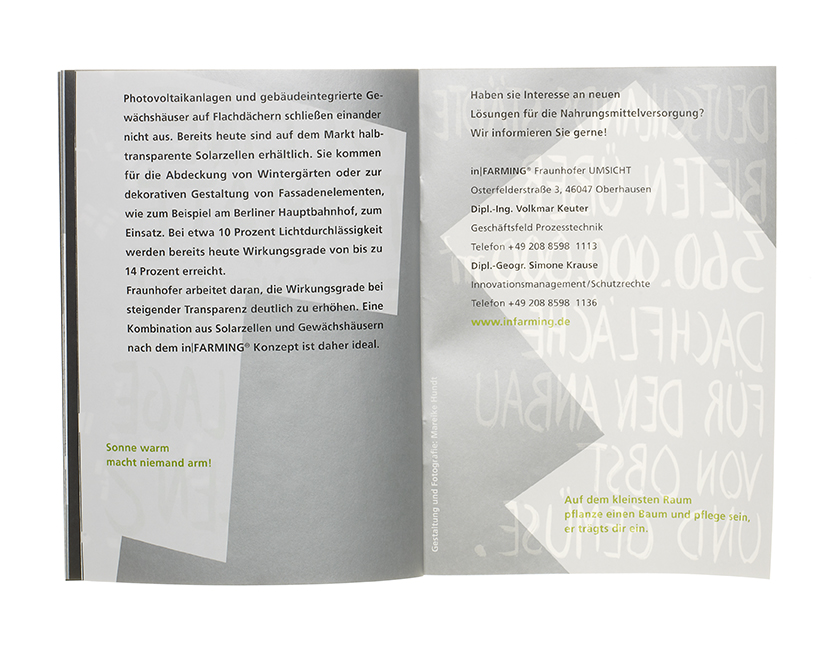 Photovoltaikanlagen und gebäudeintegrierte Ge-
wächshäuser auf Flachdächern schließen einander
nicht aus. Bereits heute sind auf dem Markt halb-
transparente Solarzellen erhältlich. Sie kommen
für die Abdeckung von Wintergärten oder zur
dekorativen Gestaltung von Fassadenelementen,
wie zum Beispiel am Berliner Hauptbahnhof, zum
Einsatz. Bei etwa 10 Prozent Lichtdurchlässigkeit
werden bereits heute Wirkungsgrade von bis zu
14 Prozent erreicht.
Fraunhofer arbeitet daran, die Wirkungsgrade bei
steigender Transparenz deutlich zu erhöhen. Eine
Kombination aus Solarzellen und Gewächshäusern
nach dem in|FARMING® Konzept ist daher ideal.
Sonne warm
macht niemand arm!
Haben sie Interesse an neuen
Lösungen für die Nahrungsmittelversorgung?
Wir informieren Sie gerne!
in|FARMING® Fraunhofer UMSICHT
Osterfelderstraße 3, 46047 Oberhausen
Dipl.-Ing. Volkmar Keuter
Geschäftsfeld Prozesstechnik
Telefon +49 208 8598 1113
Dipl.-Geogr. Simone Krause
Innovationsmanagement/Schutzrechte
Telefon +49 208 8598 1136
www.infarming.de
Gestaltung und Fotografie: Mareike Hundt
Auf dem kleinsten Raum
pflanze einen Baum und pflege sein,
er trägts dir ein.
DACHFLÄCHE
FÜR DEN ANBAU
VON OBST
UND GEMÜSE.